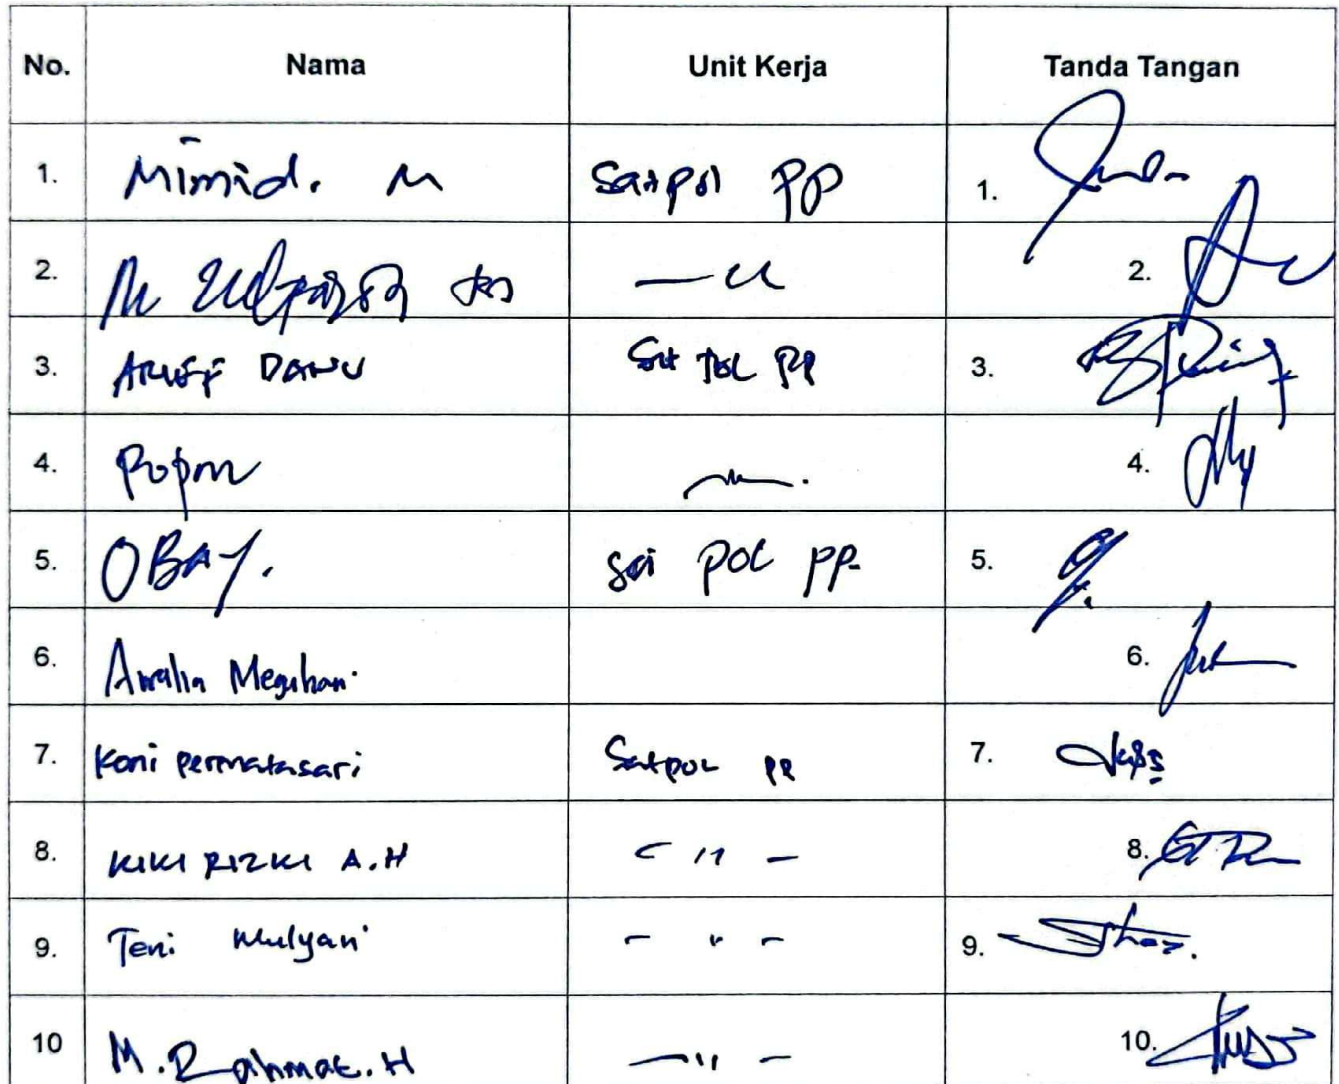 No. Nama Unit Kerja Tanda Tangan
1. Mimid. M Satpol PP 1.
2. M 2.
3. ARIEF DANU Sat POL PP 3.
4. Popon 4.
5. OBAY. Sat POL PP- 5.
6. Awalia Megihani 6.
7. Koni permatasari Satpol PP 7.
8. KIKI RIZKI A.H — 〃 — 8.
9. Teni Mulyani - 〃 - 9.
10 M. Rahmat. H — 〃 — 10.